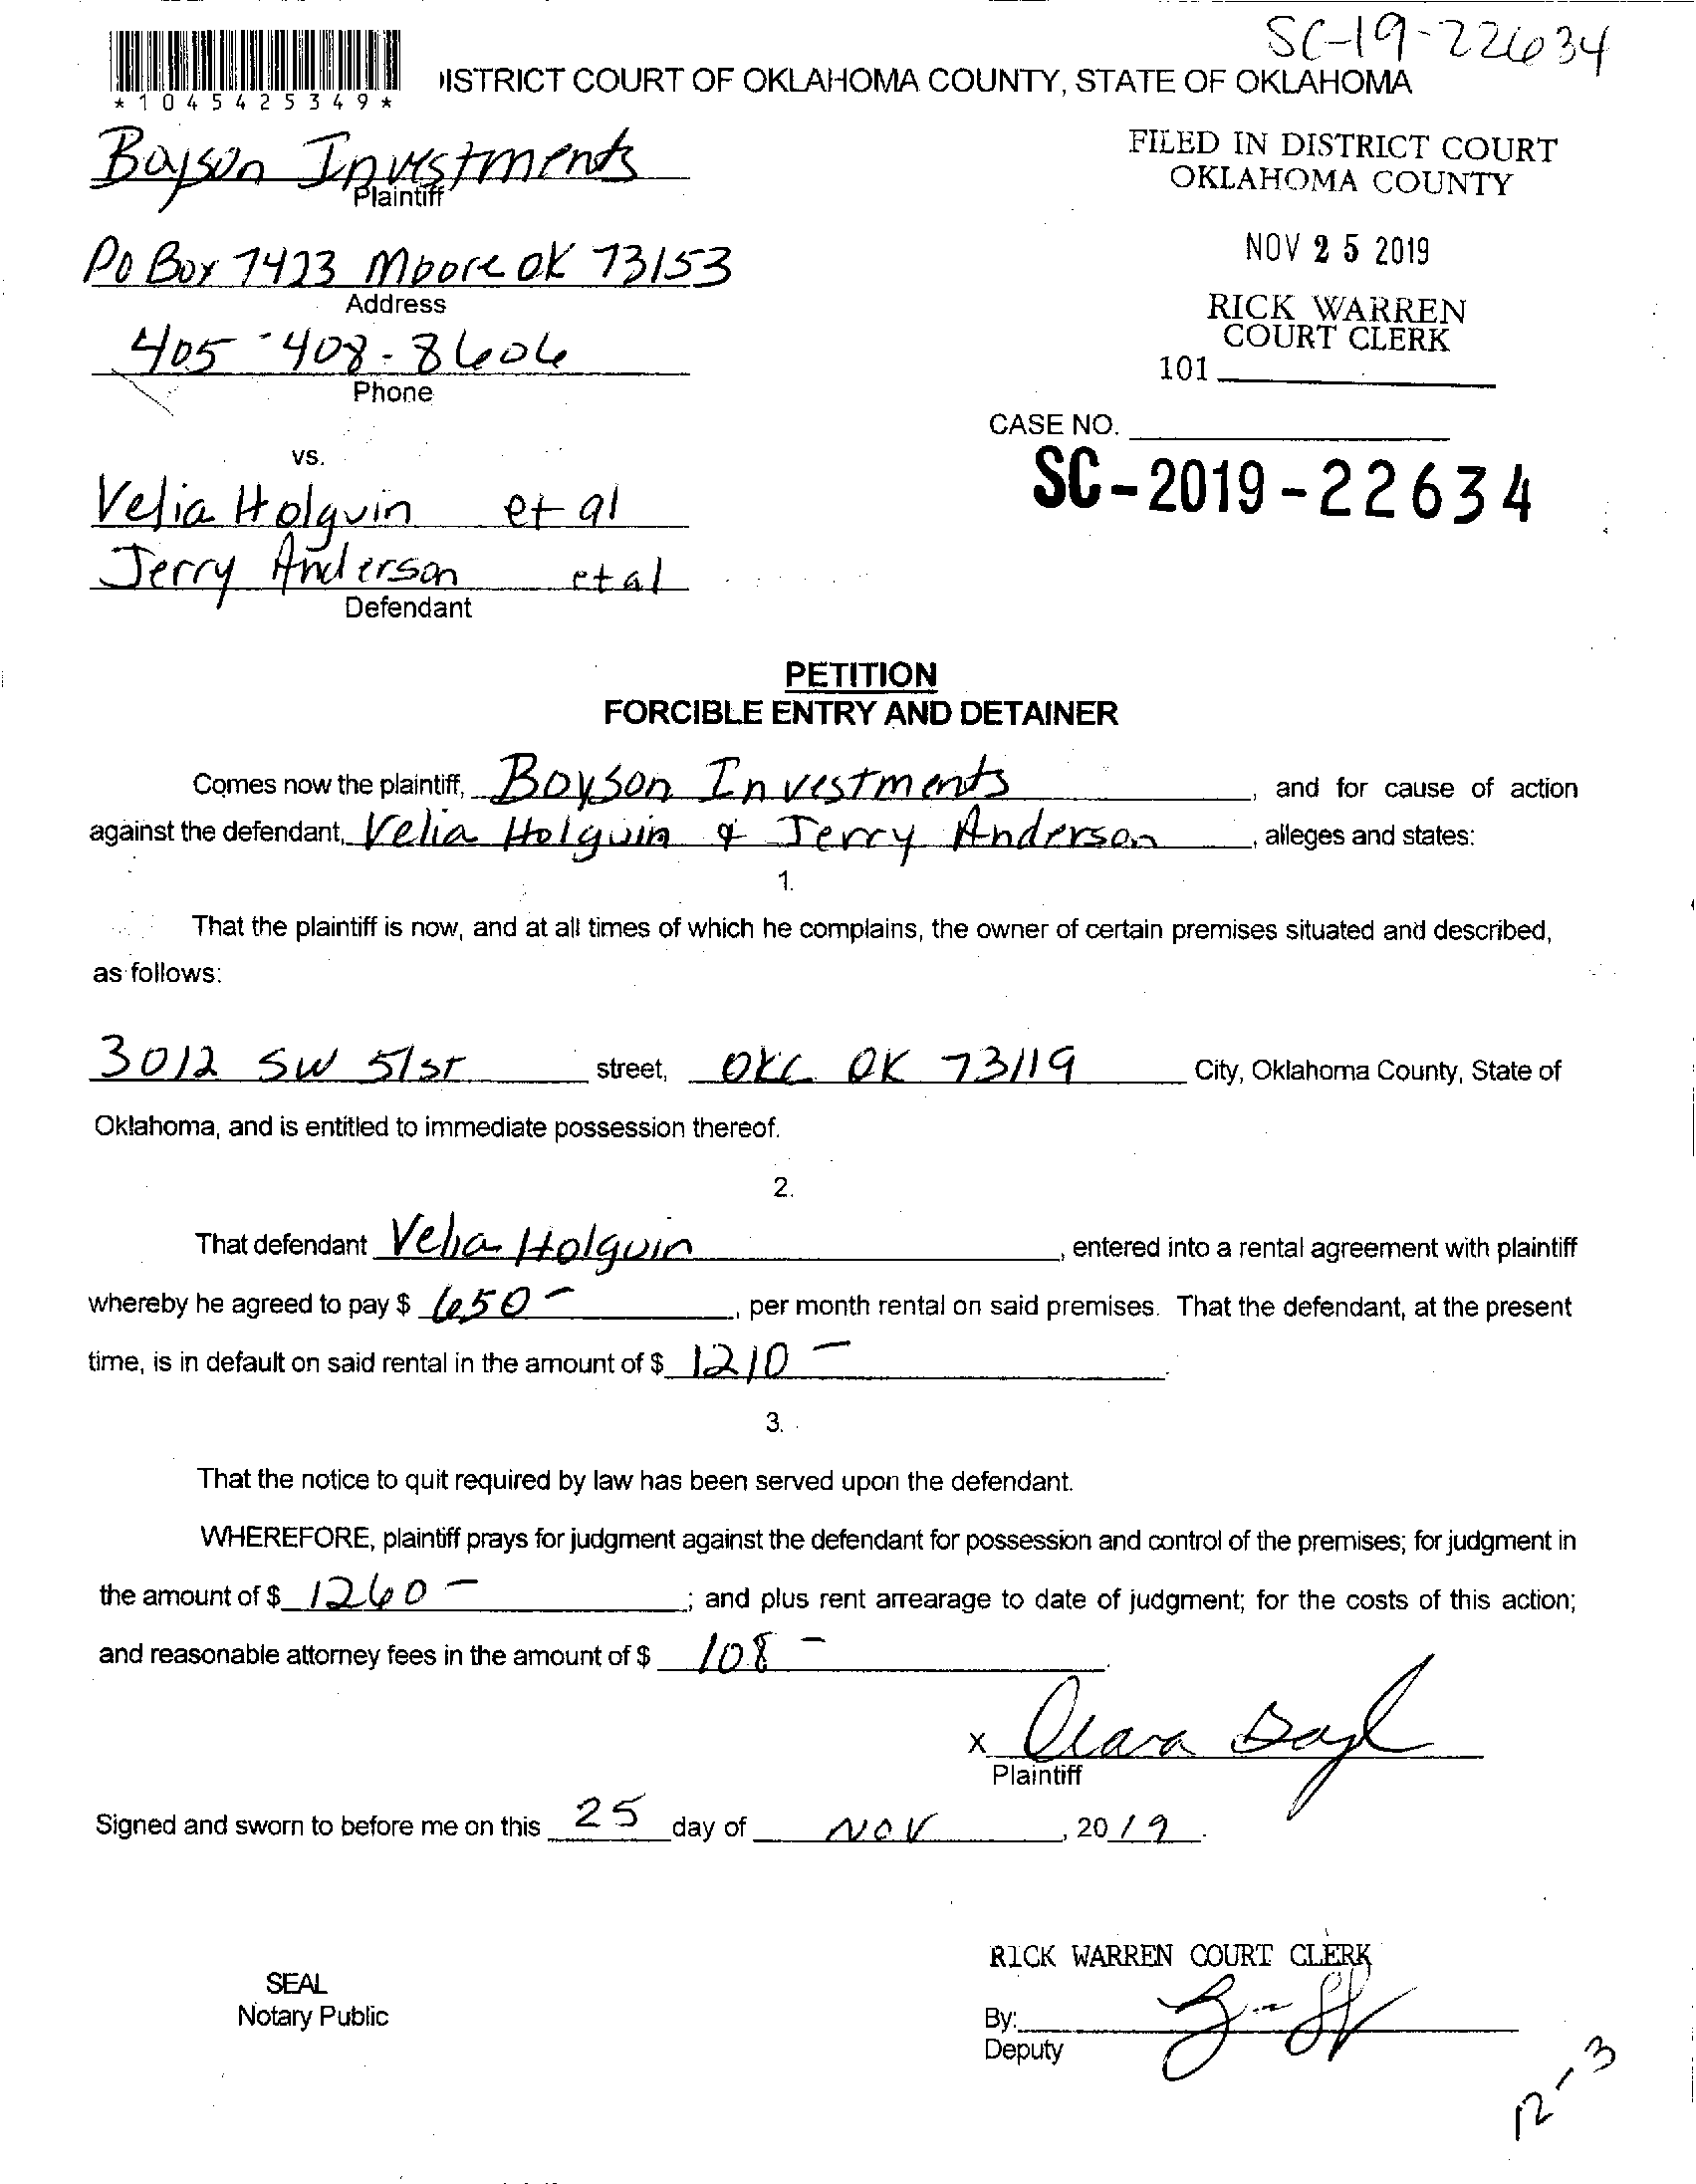 SC-19-22634
*1045425349*
ISTRICT COURT OF OKLAHOMA COUNTY, STATE OF OKLAHOMA
Boyson Investments
Plaintiff
FILED IN DISTRICT COURT
OKLAHOMA COUNTY
PO Box 7423 Moore OK 73153
Address
NOV 25 2019
405-408-8606
Phone
RICK WARREN
COURT CLERK
101
CASE NO.
SC-2019-22634
vs.
Velia Holguin et al
Jerry Anderson et al
Defendant
PETITION
FORCIBLE ENTRY AND DETAINER
Comes now the plaintiff, Boyson Investments, and for cause of action
against the defendant, Velia Holguin & Jerry Anderson, alleges and states:
1.
That the plaintiff is now, and at all times of which he complains, the owner of certain premises situated and described,
as follows:
3012 SW 51st street, OKC OK 73119 City, Oklahoma County, State of
Oklahoma, and is entitled to immediate possession thereof.
2.
That defendant Velia Holguin, entered into a rental agreement with plaintiff
whereby he agreed to pay $ 650-, per month rental on said premises. That the defendant, at the present
time, is in default on said rental in the amount of $ 1210-.
3.
That the notice to quit required by law has been served upon the defendant.
WHEREFORE, plaintiff prays for judgment against the defendant for possession and control of the premises; for judgment in
the amount of $ 1260-; and plus rent arrearage to date of judgment; for the costs of this action;
and reasonable attorney fees in the amount of $ 108-.
x Clara
Plaintiff
Signed and sworn to before me on this 25 day of NOV, 2019.
RICK WARREN COURT CLERK
SEAL
Notary Public
By:
Deputy
12-3